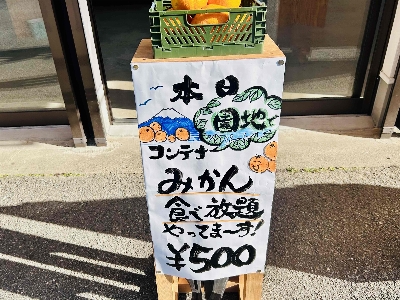 本日
園地で
コンテナ
みかん
食べ放題
やってまーす!
¥500